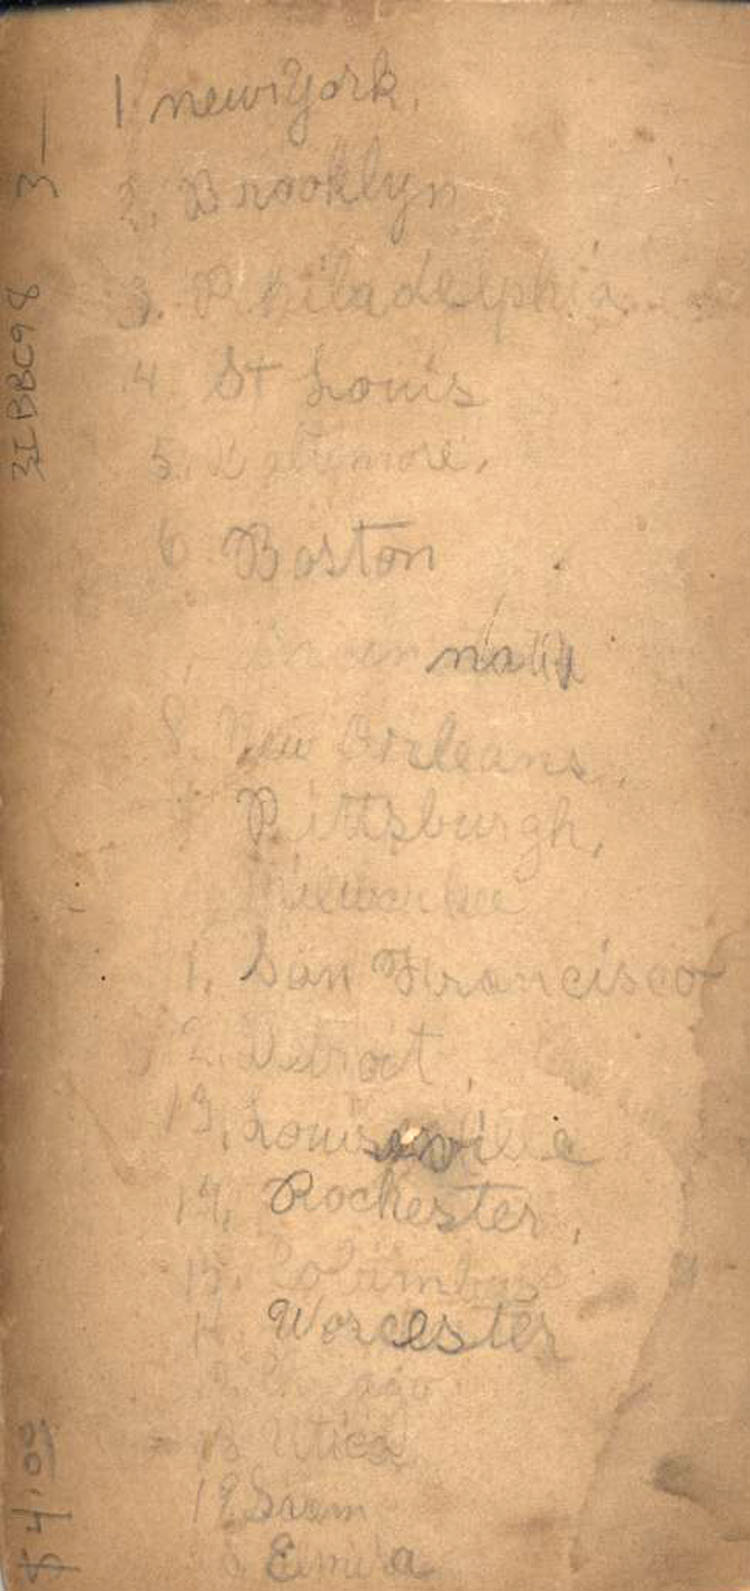 1 new York.
2. Brooklyn
3. Philadelphia
4. St Louis
5. Baltimore,
6 Boston
8. New Orleans,
Pittsburgh,
Milwaukee
1. San Francisco
2. Detroit,
13, Louisville
14, Rochester,
15. Columbus
Worcester
Utica
19
Elmira
3-
3IBBC98
$4.00